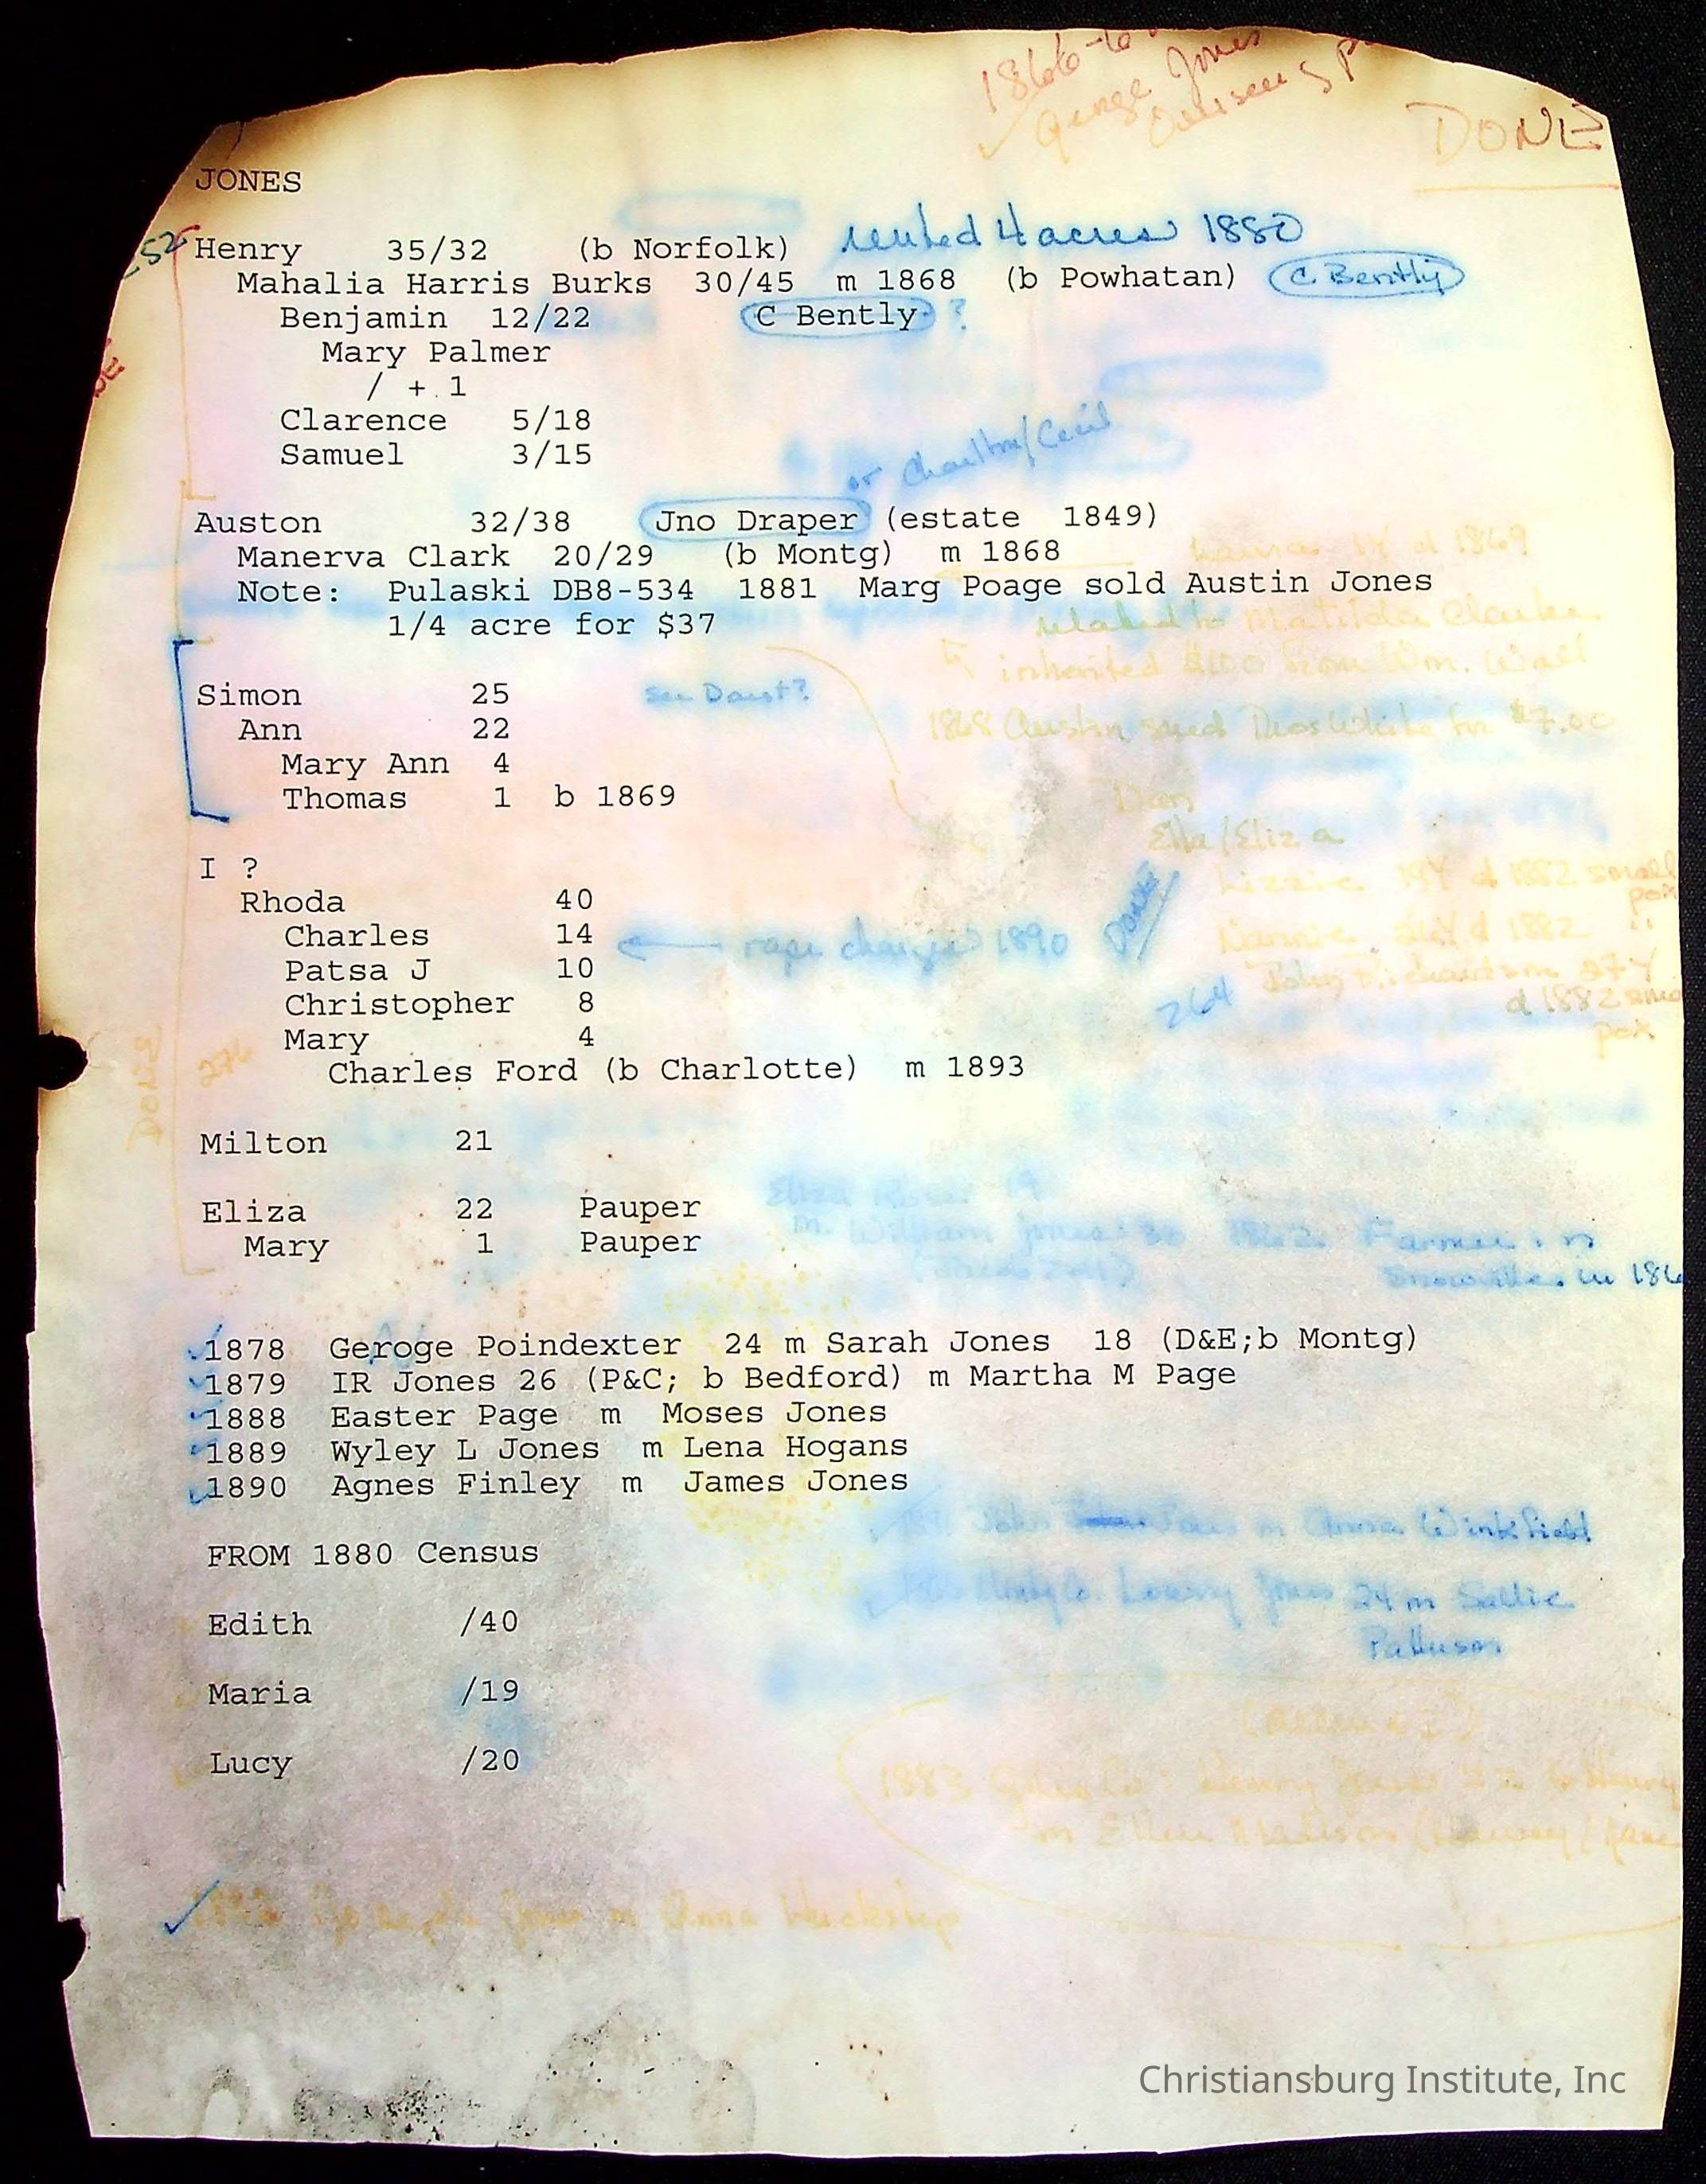 1866-
George Jones
Overseer
DONE
JONES
252
Henry 35/32 (b Norfolk) rented 4 acres 1880
Mahalia Harris Burks 30/45 m 1868 (b Powhatan) C Bently
Benjamin 12/22 C Bently ?
Mary Palmer
/ + 1
Clarence 5/18
Samuel 3/15
or Charlton/Cecil
Auston 32/38 Jno Draper (estate 1849)
Manerva Clark 20/29 (b Montg) m 1868
Laura 1Y d 1869
Note: Pulaski DB8-534 1881 Marg Poage sold Austin Jones
1/4 acre for $37
related to Matilda Clarke
inherited $100 from Wm. Wall
Simon 25 see Daust?
1868 Austin sued Thos White for $7.00
Ann 22
Mary Ann 4
Thomas 1 b 1869
Dan
Ella/Eliza
I ?
Lizzie 19Y d 1882 small
pox
Rhoda 40
Charles 14 rape charges 1890 DONE
Nannie 26Y d 1882 "
Patsa J 10
John Richardson 27Y
Christopher 8
264
d 1882 small
pox
Mary 4
276
Charles Ford (b Charlotte) m 1893
DONE
Milton 21
Eliza 19
Eliza 22 Pauper
m. William Jones 30 1862 Farmer in
Mary 1 Pauper
Snowville in 186
1878 Geroge Poindexter 24 m Sarah Jones 18 (D&E;b Montg)
1879 IR Jones 26 (P&C; b Bedford) m Martha M Page
1888 Easter Page m Moses Jones
1889 Wyley L Jones m Lena Hogans
1890 Agnes Finley m James Jones
John Jones m Anna Winkfield
FROM 1880 Census
Lowry Jones 24 m Sallie
Patterson
Edith /40
Maria /19
Lucy /20
1883 Giles Co Henry Jones 22
m Ellen Madison (Harvey/Jane
Joseph Jones m Anna Huckstep
Christiansburg Institute, Inc